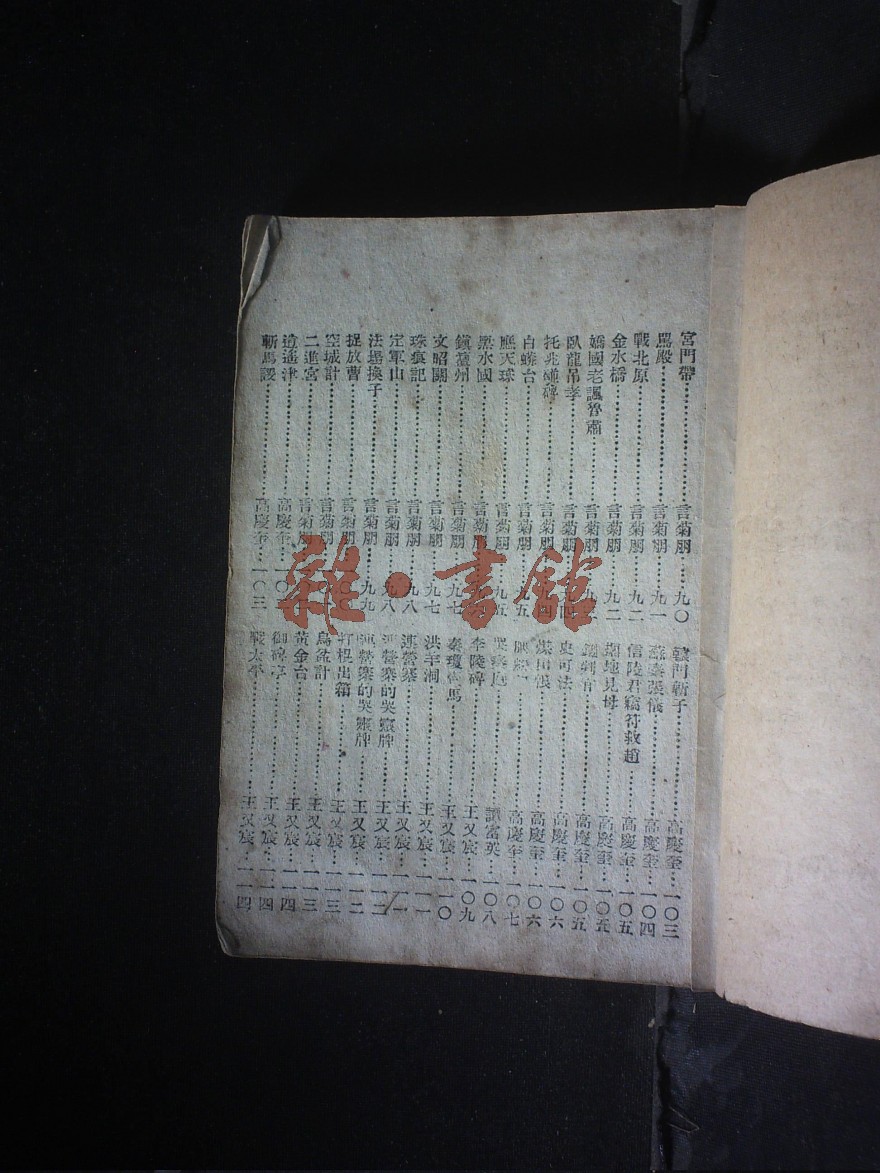 宮門帶⋯⋯言菊朋⋯九〇
罵殿⋯⋯言菊朋⋯九一
戰北原⋯⋯言菊朋⋯九二
金水橋⋯⋯言菊朋⋯九二
喬國老諷魯肅⋯⋯言菊朋
臥龍吊孝⋯⋯言菊朋⋯九四
托兆碰碑⋯⋯言菊朋
白蟒台⋯⋯言菊朋⋯九五
應天球⋯⋯言菊朋
黑水國⋯⋯言菊朋
鎭潼州⋯⋯言菊朋⋯九七
文昭關⋯⋯言菊朋⋯九七
珠痕記⋯⋯言菊朋⋯九八
定軍山⋯⋯言菊朋⋯九八
法塲換子⋯⋯言菊朋⋯九九
捉放曹⋯⋯言菊朋
空城計⋯⋯言菊朋
二進宮⋯⋯言菊朋
逍遙津⋯⋯高慶奎⋯一〇
斬馬謖⋯⋯高慶奎⋯一〇三
轅門斬子⋯⋯高慶奎⋯一〇三
蘇秦張儀⋯⋯高慶奎⋯一〇四
信陵君竊符救趙⋯⋯高慶奎⋯一〇五
掘地見母⋯⋯高慶奎⋯一〇五
高慶奎⋯一〇五
史可法⋯⋯高慶奎⋯一〇六
高慶奎⋯一〇六
高慶奎⋯一〇七
譚富英⋯一〇八
李陵碑⋯⋯王又宸⋯一〇九
秦瓊賣馬⋯⋯王又宸⋯一一〇
洪羊洞⋯⋯王又宸⋯一一一
連營寨⋯⋯王又宸⋯一一
連營寨的哭靈牌⋯⋯王又宸⋯一一二
連營寨的哭靈牌⋯⋯王又宸⋯一一二
打棍出箱⋯⋯王又宸⋯一一三
烏盆計⋯⋯王又宸⋯一一三
黃金台⋯⋯王又宸⋯一一四
御碑亭⋯⋯王又宸⋯一一四
戰太平⋯⋯王又宸⋯一一四
雜·書館